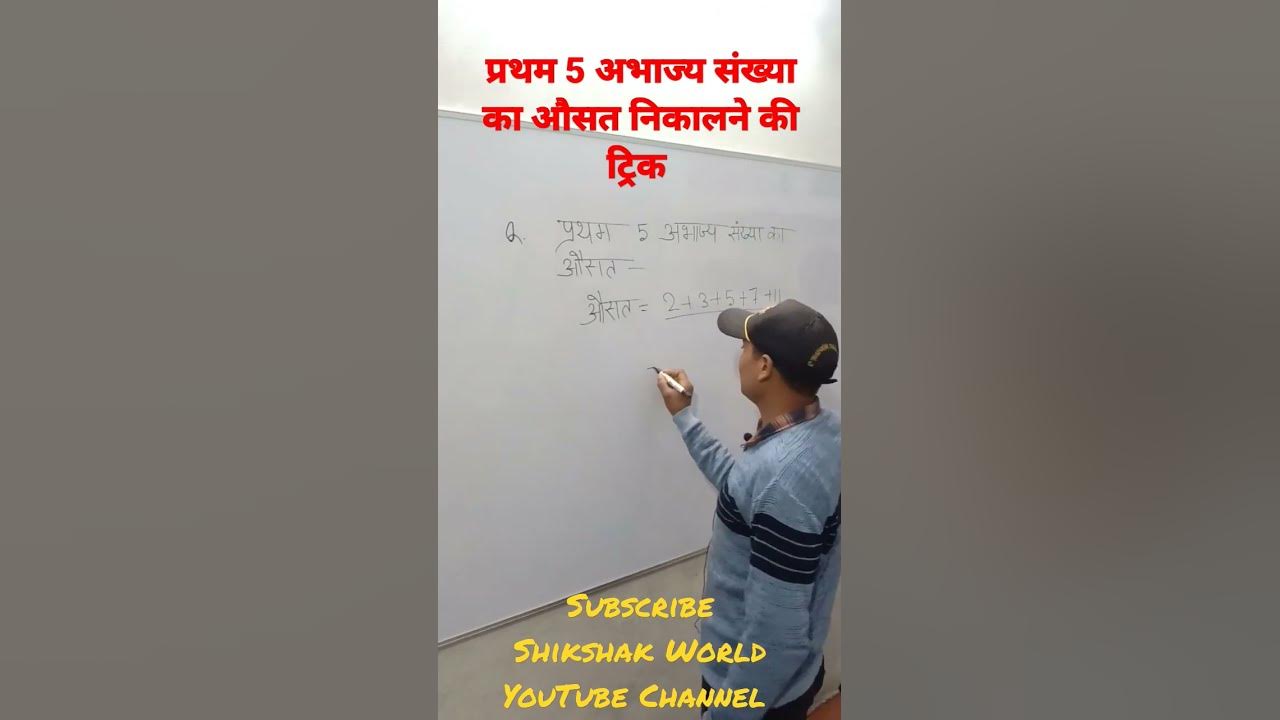 प्रथम 5 अभाज्य संख्या
का औसत निकालने की
ट्रिक
Q. प्रथम 5 अभाज्य संख्या का
औसत —
औसत = 2+3+5+7+11
SUBSCRIBE
SHIKSHAK WORLD
YOUTUBE CHANNEL